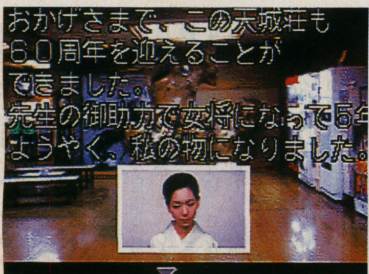 おかげさまで、この天城荘も
60周年を迎えることが
できました。
先生の御助力で女将になって5年
ようやく、私の物になりました。